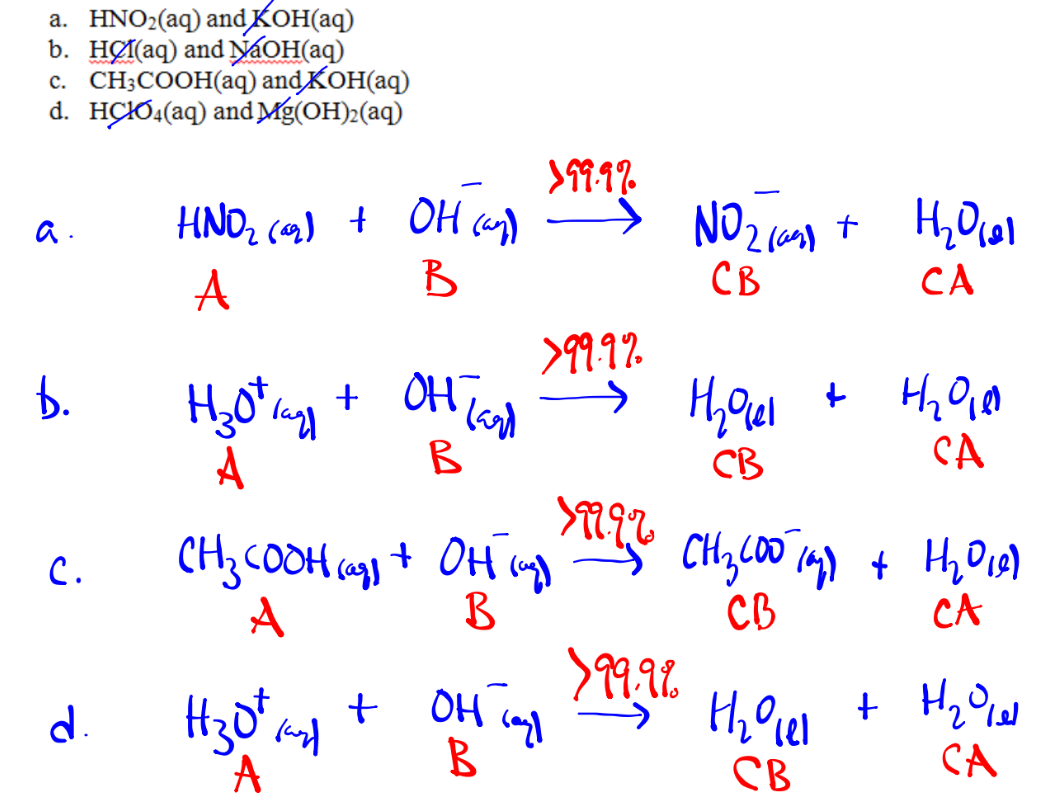 a. HNO₂(aq) and KOH(aq)
b. HCl(aq) and NaOH(aq)
c. CH₃COOH(aq) and KOH(aq)
d. HClO₄(aq) and Mg(OH)₂(aq)
>99.9%
a. HNO₂(aq) + OH⁻(aq) → NO₂⁻(aq) + H₂O(l)
A B CB CA
>99.9%
b. H₃O⁺(aq) + OH⁻(aq) → H₂O(l) + H₂O(l)
A B CB CA
>99.9%
c. CH₃COOH(aq) + OH⁻(aq) → CH₃COO⁻(aq) + H₂O(l)
A B CB CA
>99.9%
d. H₃O⁺(aq) + OH⁻(aq) → H₂O(l) + H₂O(l)
A B CB CA